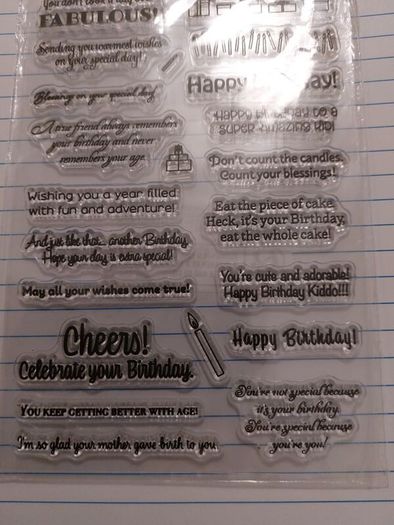 FABULOUS!
Sending you warmest wishes
on your special day!
Blessings on your special day!
A true friend always remembers
your birthday and never
remembers your age.
Wishing you a year filled
with fun and adventure!
And just like that... another Birthday.
Hope your day is extra special!
May all your wishes come true!
Cheers!
Celebrate your Birthday.
YOU KEEP GETTING BETTER WITH AGE!
I'm so glad your mother gave birth to you.
Happy Birthday!
Happy Birthday to a
super amazing kid!
Don't count the candles.
Count your blessings!
Eat the piece of cake
Heck, it's your Birthday,
eat the whole cake!
You're cute and adorable!
Happy Birthday Kiddo!!!
Happy Birthday!
You're not special because
it's your birthday.
You're special because
you're you!